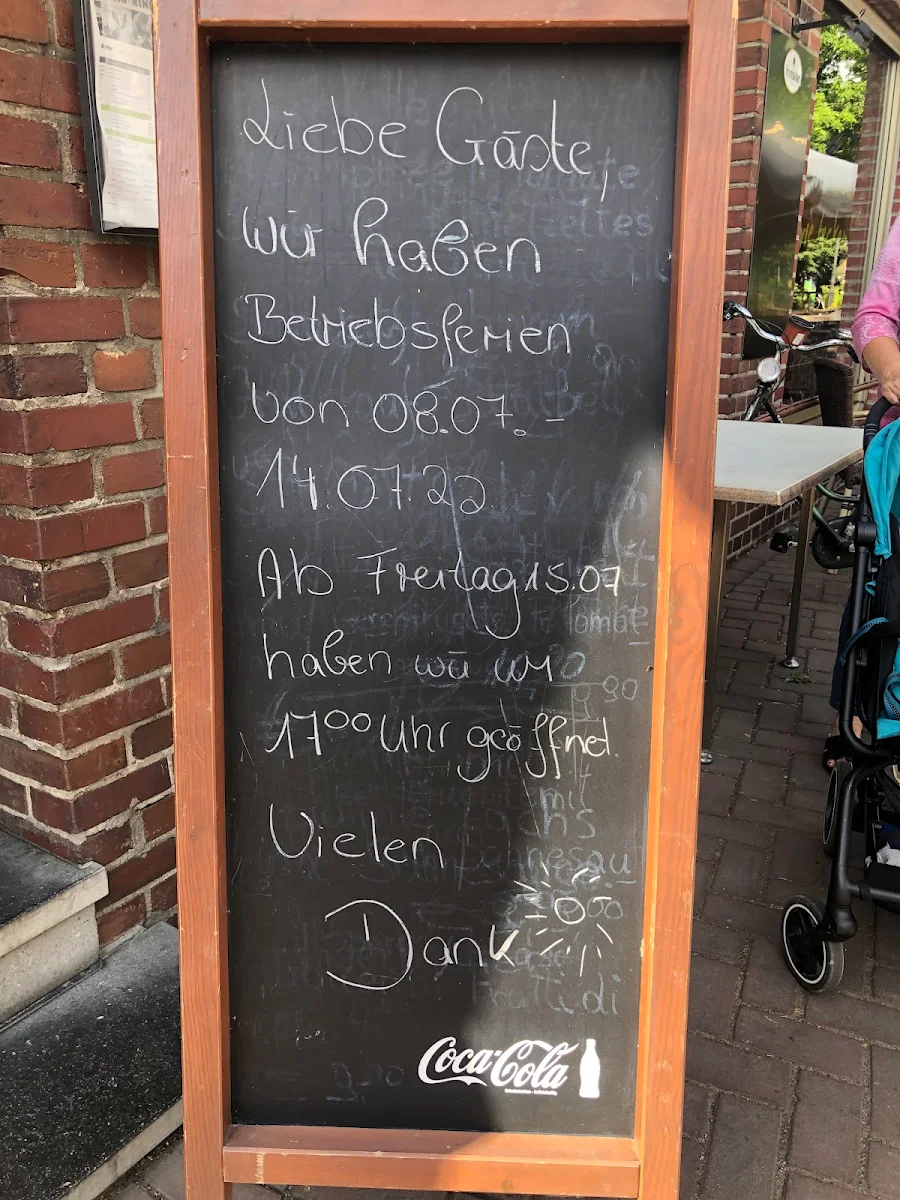 Liebe Gäste,
wir haben
Betriebsferien
von 08.07. -
14.07.22
Ab Freitag 15.07
haben wir
17⁰⁰ Uhr geöffnet.
Vielen
Dank
Coca-Cola